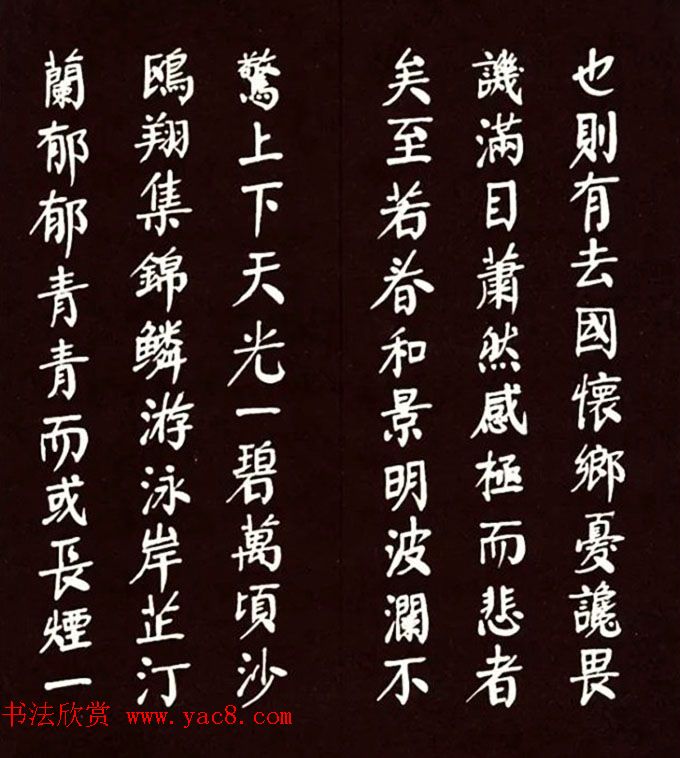 也則有去國懷鄉憂讒畏
譏滿目蕭然感極而悲者
矣至若春和景明波瀾不
驚上下天光一碧萬頃沙
鷗翔集錦鱗游泳岸芷汀
蘭郁郁青青而或長煙一
书法欣赏 www.yac8.com